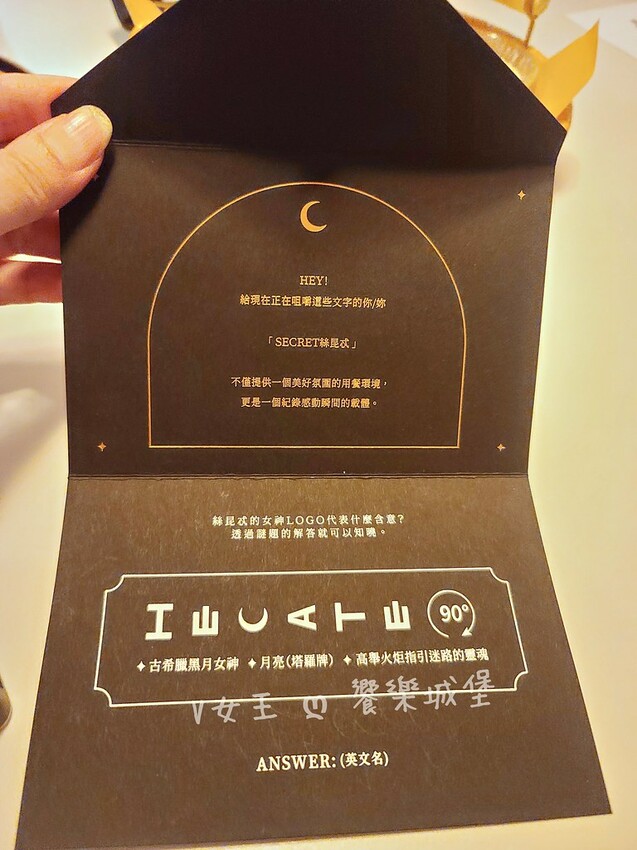 HEY!
給現在正在咀嚼這些文字的你/妳
「SECRET絲昆忒」
不僅提供一個美好氛圍的用餐環境，
更是一個紀錄感動瞬間的載體。
絲昆忒的女神LOGO代表什麼含意?
透過謎題的解答就可以知曉。
HECATE 90°
✦古希臘黑月女神 ✦月亮(塔羅牌) ✦高舉火炬指引迷路的靈魂
V女王 ღ 饗樂城堡
ANSWER: (英文名)